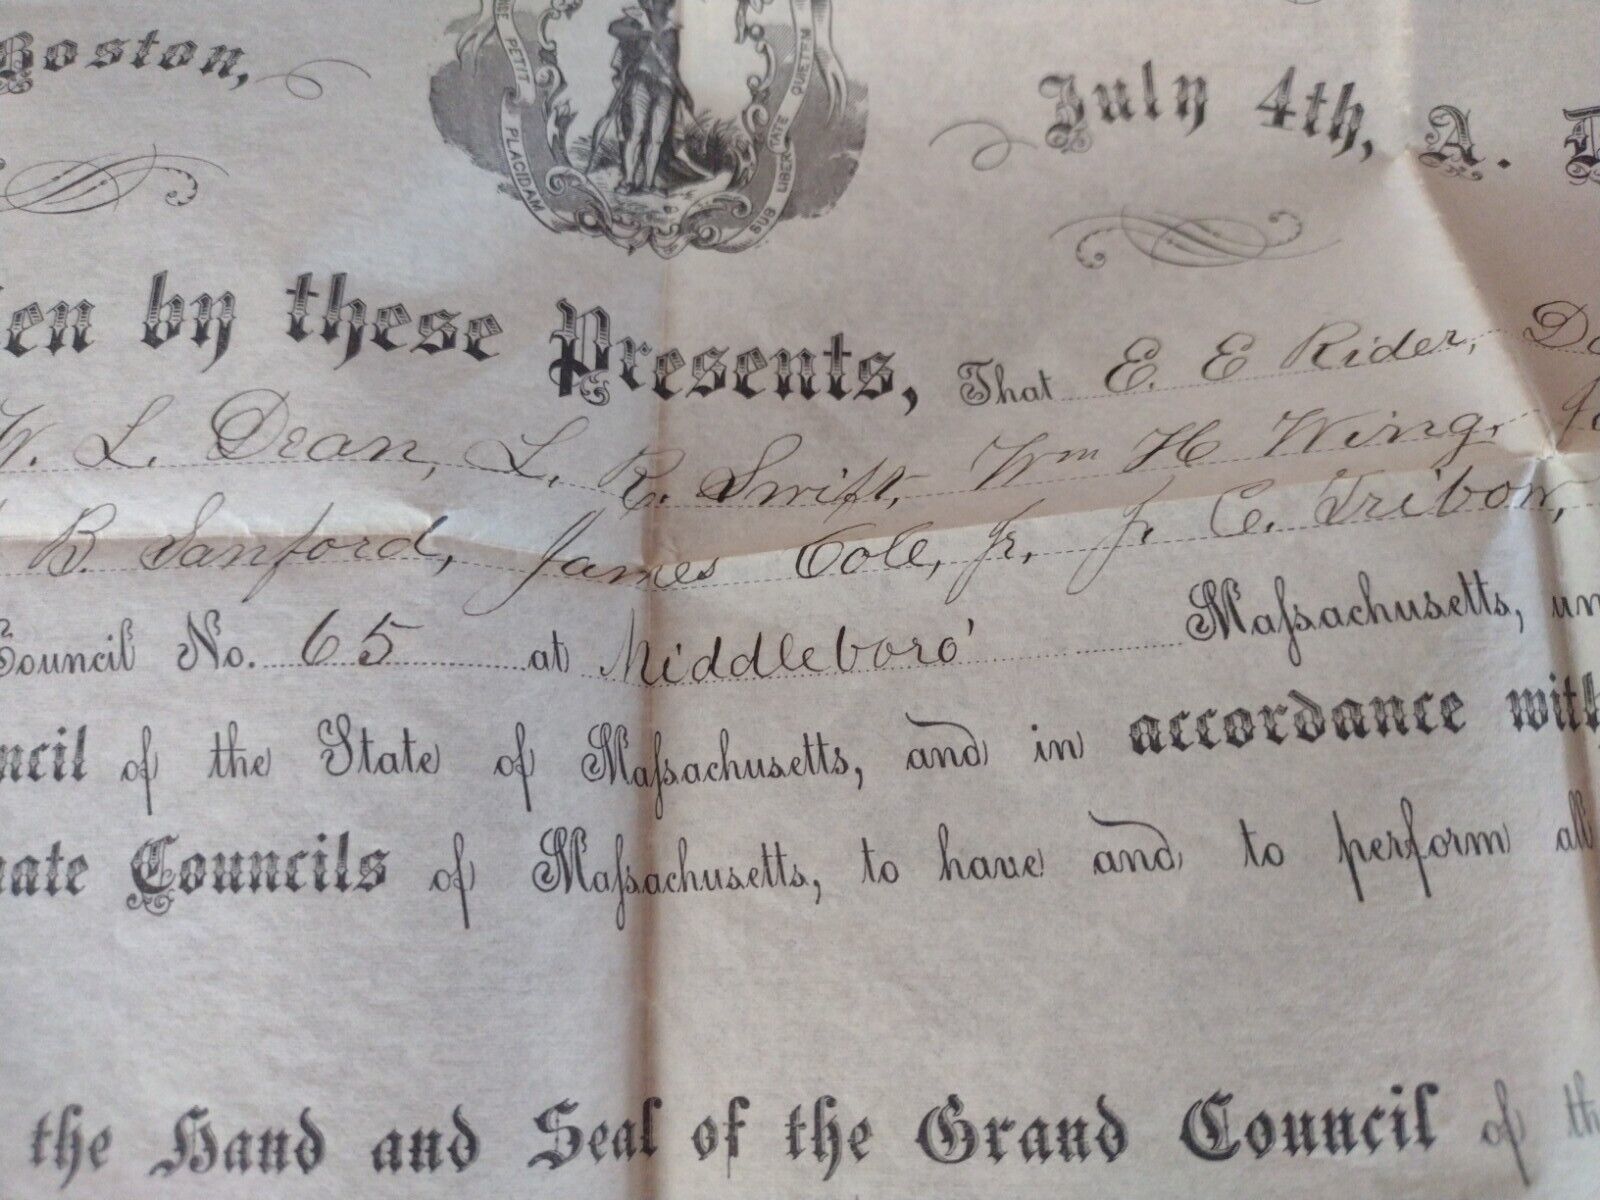 Boston, July 4th, A.
PETIT PLACIDAM SUB LIBERTATE QUIETEM
by these Presents, That E. E Rider,
W. L. Dean, L. R. Swift, Wm H Wing,
B. Sanford, James Cole, Jr. J. C. Tribou,
Council No. 65 at Middleboro' Maſsachusetts,
of the State of Maſsachusetts, and in accordance with
Councils of Maſsachusetts, to have and to perform all
the Hand and Seal of the Grand Council of